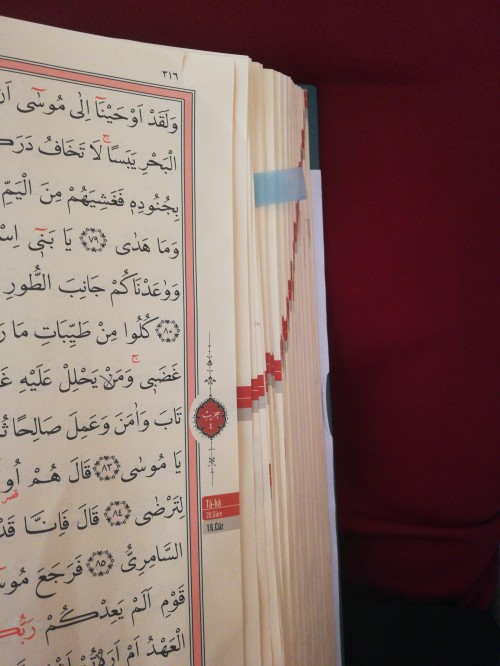 ٣١٦
وَلَقَدْ اَوْحَيْنَٓا اِلٰى مُوسٰٓى اَنْ
الْبَحْرِ يَبَسًاۚ لَا تَخَافُ
بِجُنُودِه۪ فَغَشِيَهُمْ مِنَ الْيَمِّ
وَمَا هَدٰى ﴿٧٩﴾ يَا بَن۪ٓى
وَوٰعَدْنَاكُمْ جَانِبَ الطُّورِ
﴿٨٠﴾ كُلُوا مِنْ طَيِّبَاتِ مَا
غَضَب۪ىۚ وَمَنْ يَحْلِلْ عَلَيْهِ
تَابَ وَاٰمَنَ وَعَمِلَ صَالِحًا
حزب
٤
يَا مُوسٰى ﴿٨٣﴾ قَالَ هُمْ
لِتَرْضٰى ﴿٨٤﴾ قَالَ فَاِنَّا قَدْ
السَّامِرِىُّ ﴿٨٥﴾ فَرَجَعَ
قَوْمِ اَلَمْ يَعِدْكُمْ
الْعَهْدُ اَمْ
Tâ-hâ
20.Sûre
16.Cüz